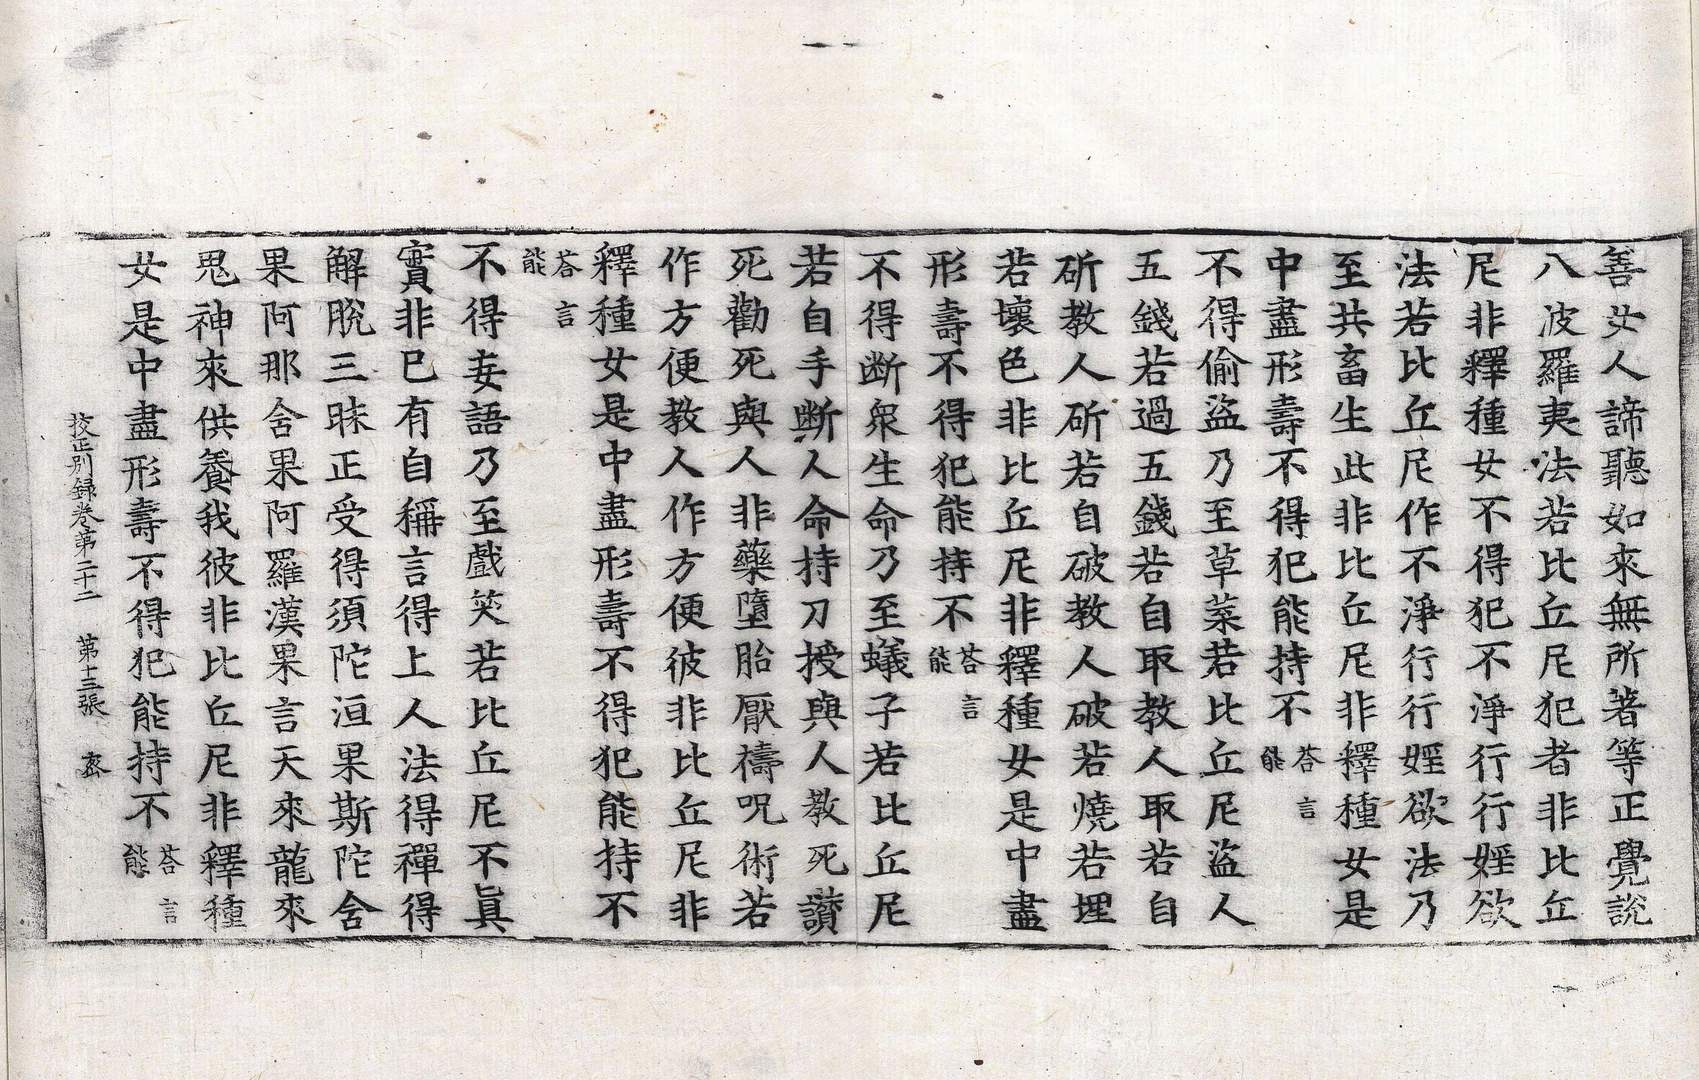 善女人諦聽如來無所著等正覺說
八波羅夷法若比丘尼犯者非比丘
尼非釋種女不得犯不淨行行婬欲
法若比丘尼作不淨行行婬欲法乃
至共畜生此非比丘尼非釋種女是
中盡形壽不得犯能持不答言能
不得偷盜乃至草菜若比丘尼盜人
五錢若過五錢若自取教人取若自
斫教人斫若自破教人破若燒若埋
若壞色非比丘尼非釋種女是中盡
形壽不得犯能持不答言能
不得断衆生命乃至蟻子若比丘尼
若自手断人命持刀授與人教死讃
死勸死與人非藥墮胎厭禱呪術若
作方便教人作方便彼非比丘尼非
釋種女是中盡形壽不得犯能持不
答言能
不得妄語乃至戲笑若比丘尼不眞
實非巳有自稱言得上人法得禪得
解脫三昧正受得須陀洹果斯陀舍
果阿那舍果阿羅漢果言天來龍來
鬼神來供養我彼非比丘尼非釋種
女是中盡形壽不得犯能持不答言能
挍正別録卷第二十二 第十三張